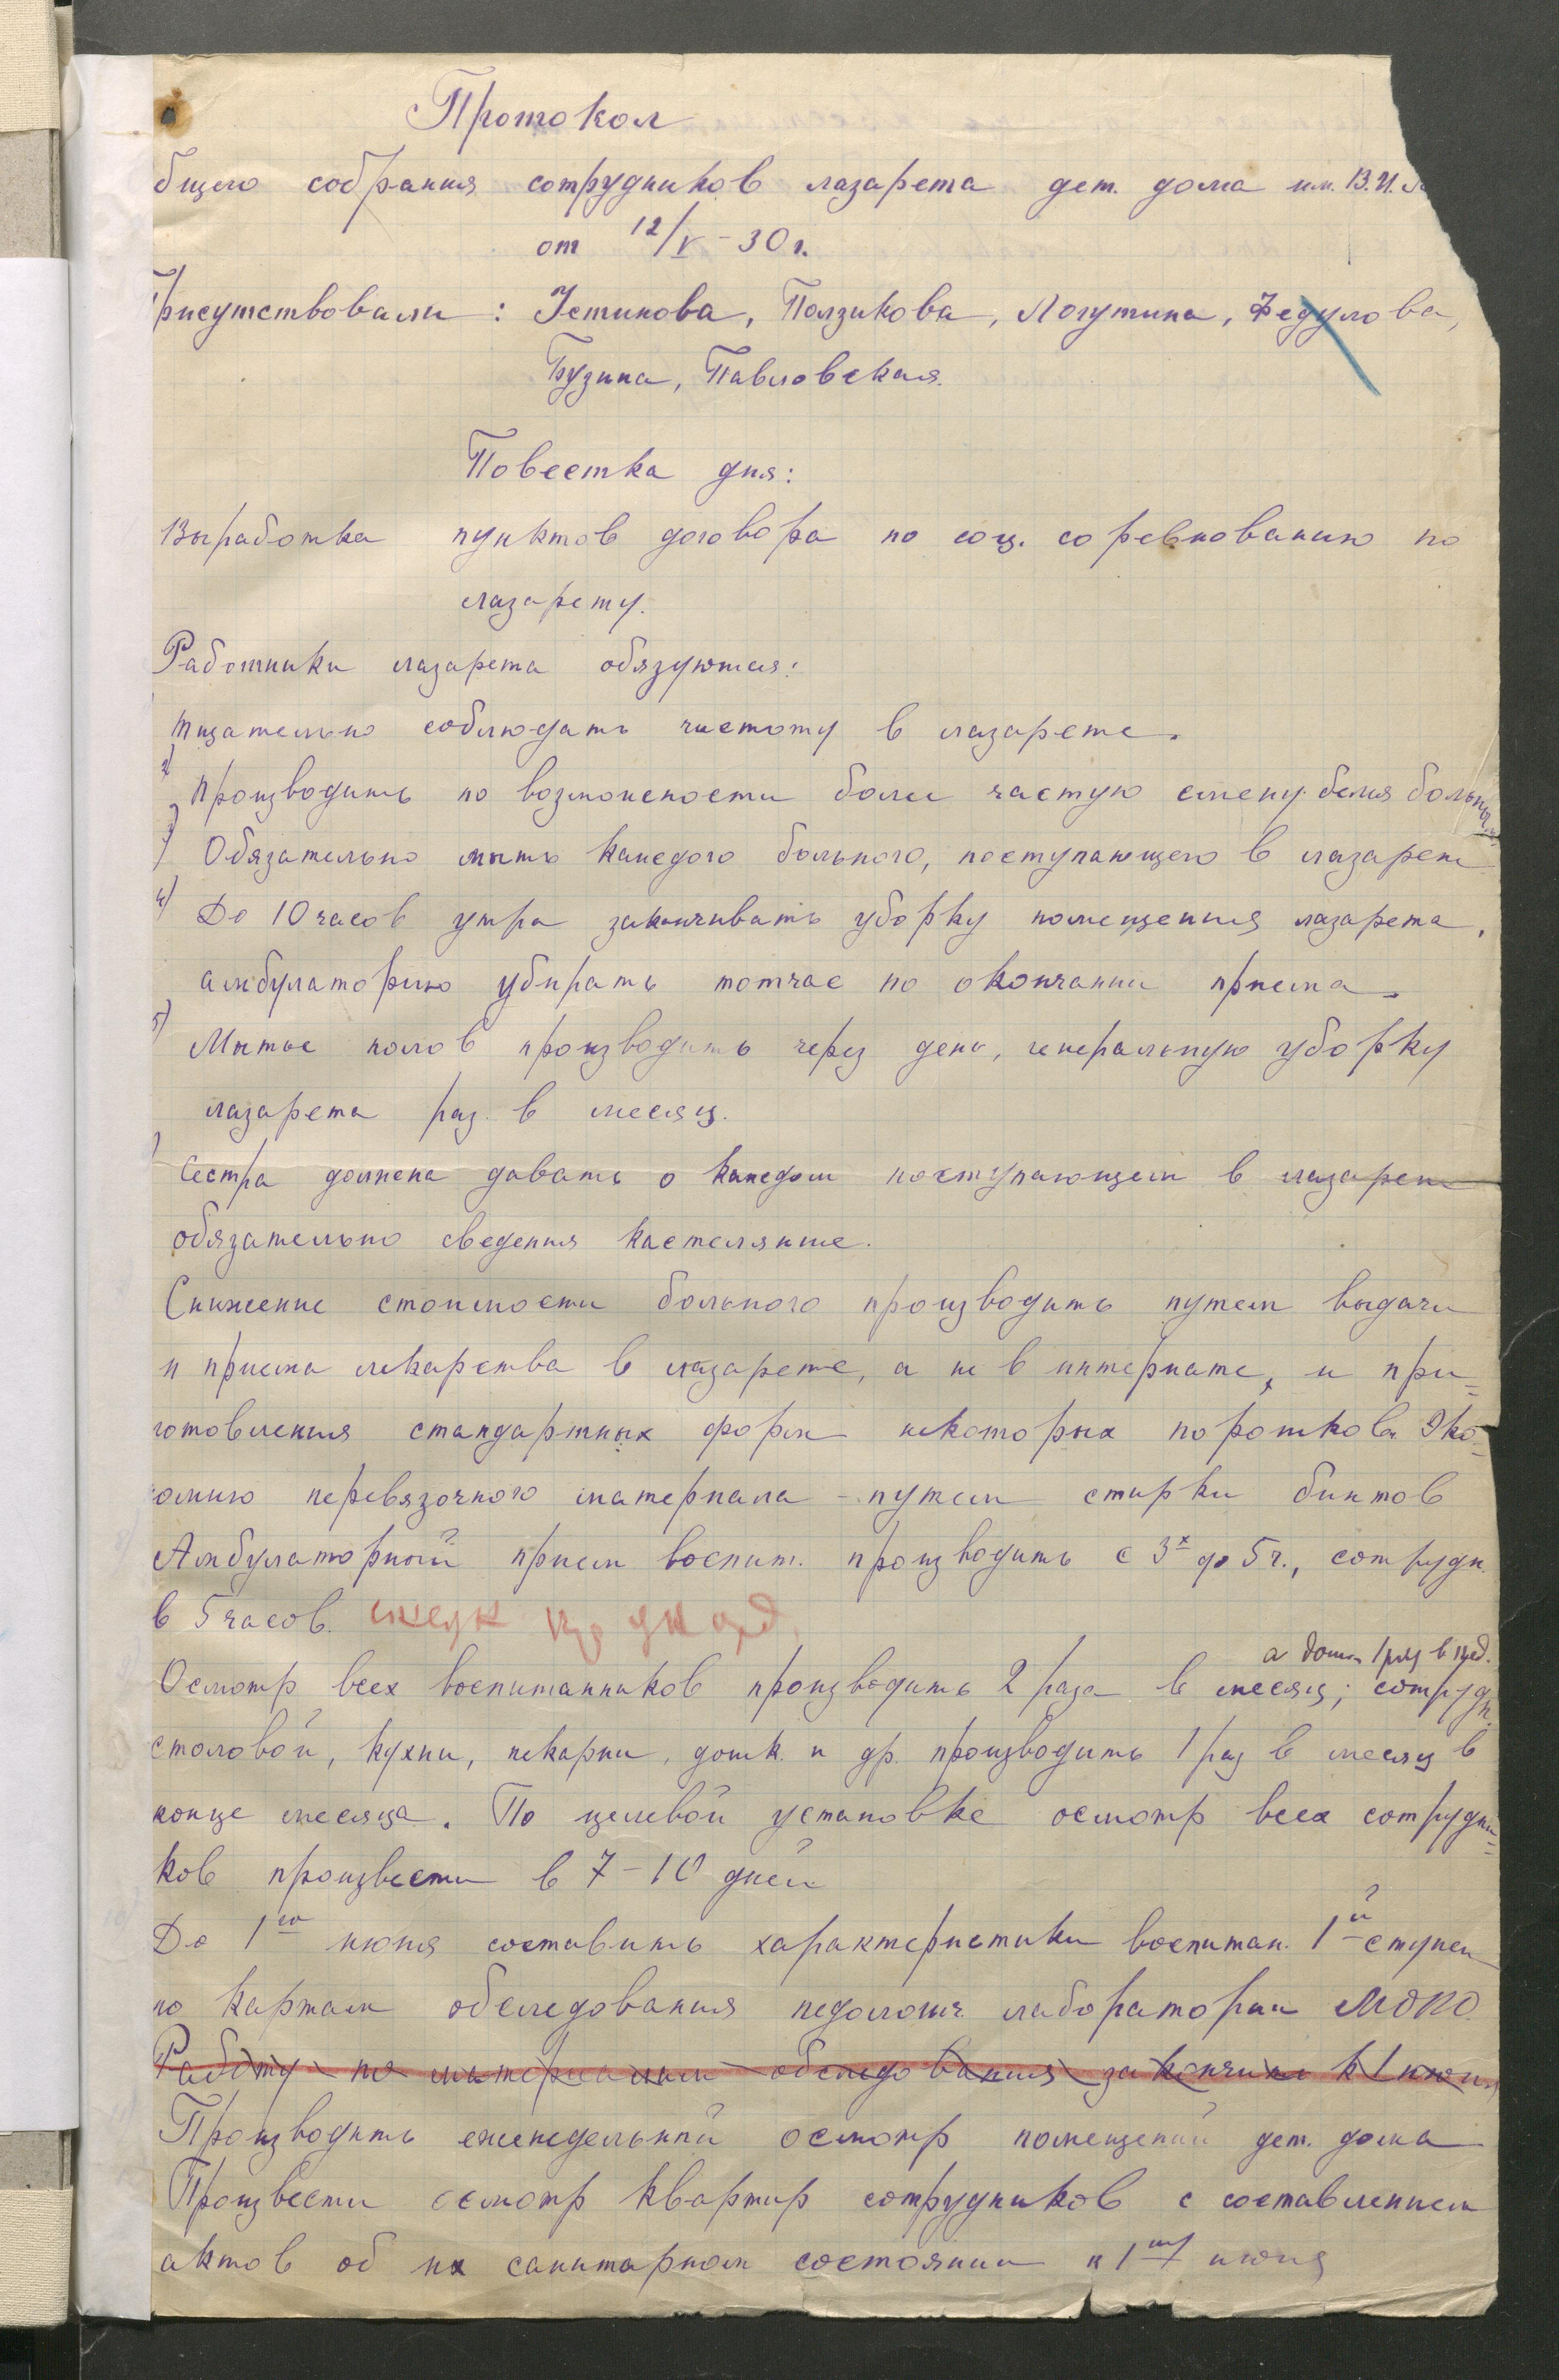 Протокол
бщего собрания сотрудников лазарета дет. дома им. В.И.
от 12/V - 30 г.
Присутствовали: Устинова, Ползикова, Логутина, Федулова,
Бузина, Павловская.
Повестка дня:
Выработка пунктов договора по соц. соревнованию по
лазарету.
Работники лазарета обязуются:
тщательно соблюдать чистоту в лазарете.
2) Производить по возможности более частую смену белья больных
) Обязательно мыть каждого больного, поступающего в лазарет
4) До 10 часов утра заканчивать уборку помещения лазарета,
амбулаторию убирать тотчас по окончании приема.
5) Мытье полов производить через день, генеральную уборку
лазарета раз в месяц.
) Сестра должна давать о каждом поступающем в лазарет
обязательно сведения кастелянше.
Снижение стоимости больного производить путем выдачи
и приема лекарства в лазарете, а не в интернате, и при=
готовления стандартных форм некоторых порошков. Эко=
омию перевязочного материала - путем стирки бинтов
Амбулаторный прием воспит. производить с 3х до 5 ч., сотрудн.
в 5 часов.
а дошк. 1 раз в нед.
Осмотр всех воспитанников производить 2 раза в месяц; сотрудн.
столовой, кухни, пекарни, дошк. и др. производить 1 раз в месяц в
конце месяца. По целевой установке осмотр всех сотрудни=
ков произвести в 7-10 дней
До 1го июня составить характеристики воспитан. 1й ступен
по картам обследования педологич. лаборатории МОНО.
Работу по материалам обследования закончить к 1 июня
Производить еженедельный осмотр помещений дет. дома
Произвести осмотр квартир сотрудников с составлением
актов об их санитарном состоянии к 1му июня